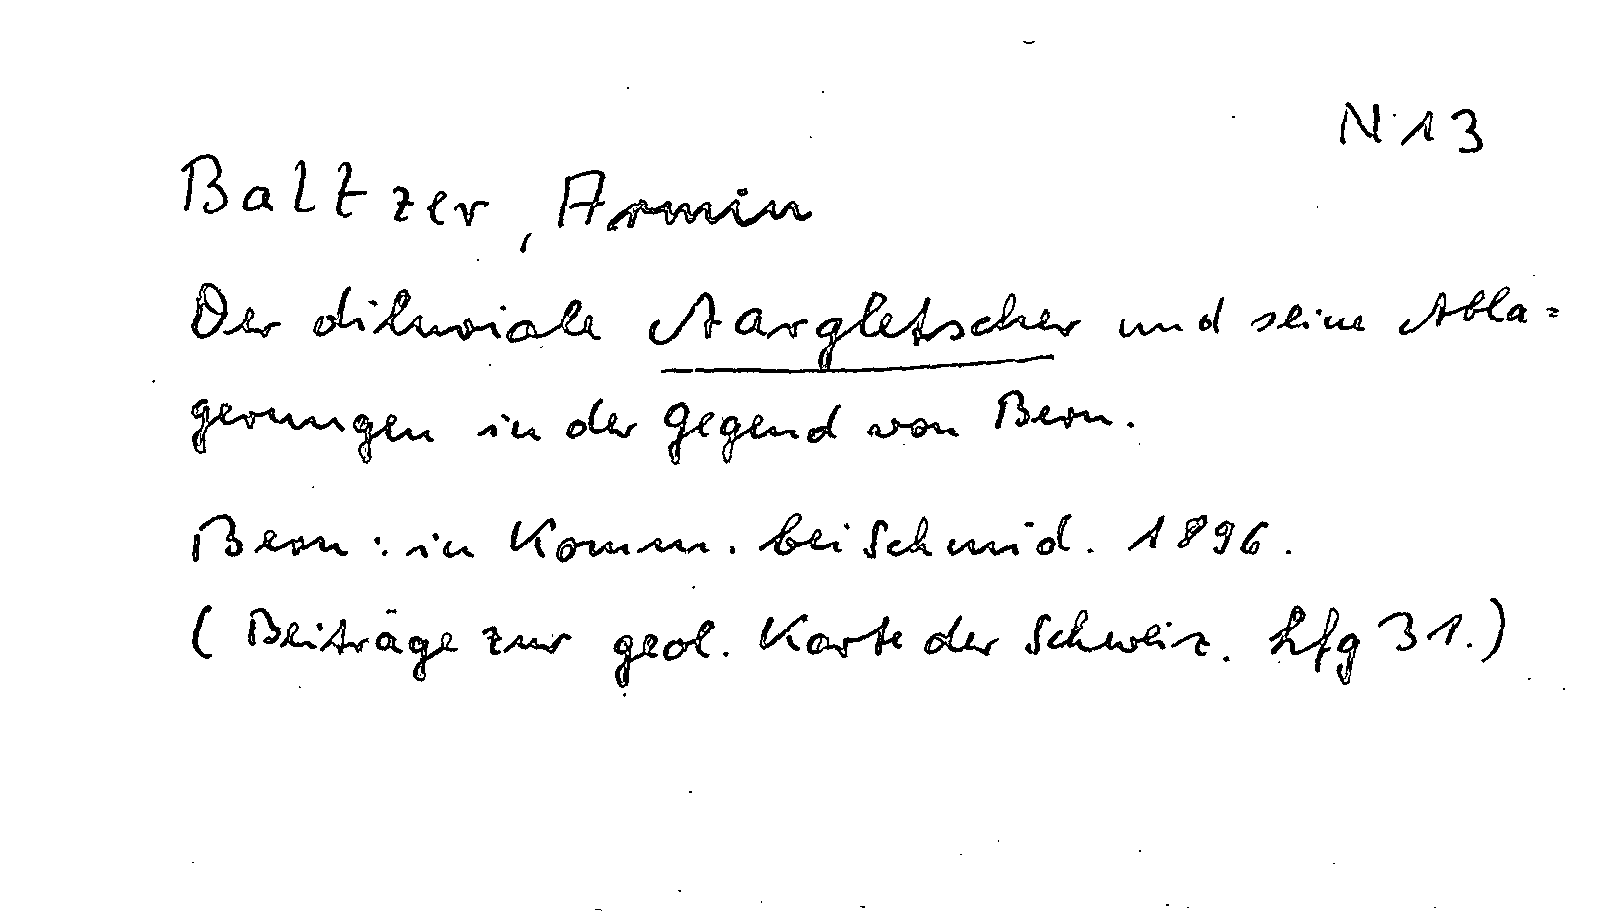 N 13
Baltzer, Armin
Der diluviale Aargletscher und seine Abla=
gerungen in der Gegend von Bern.
Bern: in Komm. bei Schmid. 1896.
(Beiträge zur geol. Karte der Schweiz. Lfg 31.)